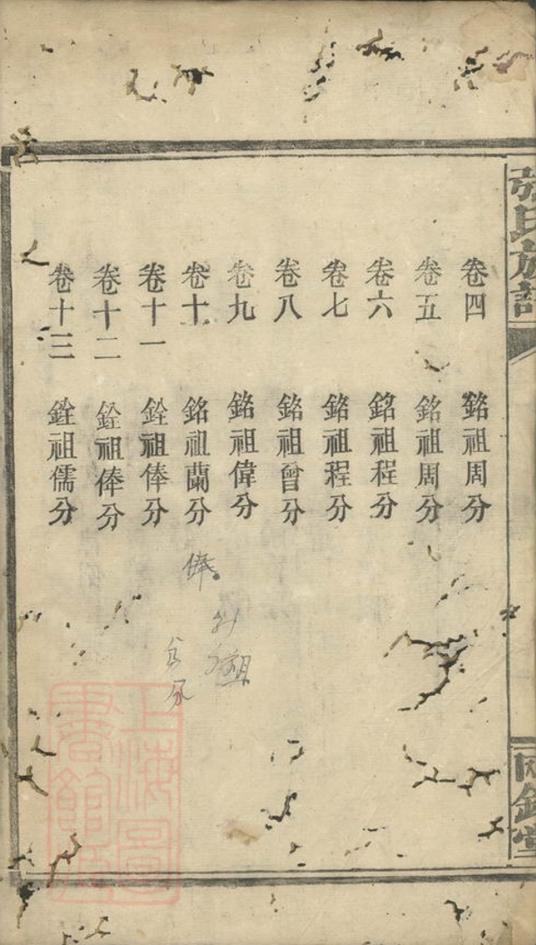 張氏族譜
卷四 銘祖周分
卷五 銘祖周分
卷六 銘祖程分
卷七 銘祖程分
卷八 銘祖曾分
卷九 銘祖偉分
卷十 銘祖蘭分
卷十一 銓祖俸分
卷十二 銓祖俸分
卷十三 銓祖儒分
俸
上海圖書館藏